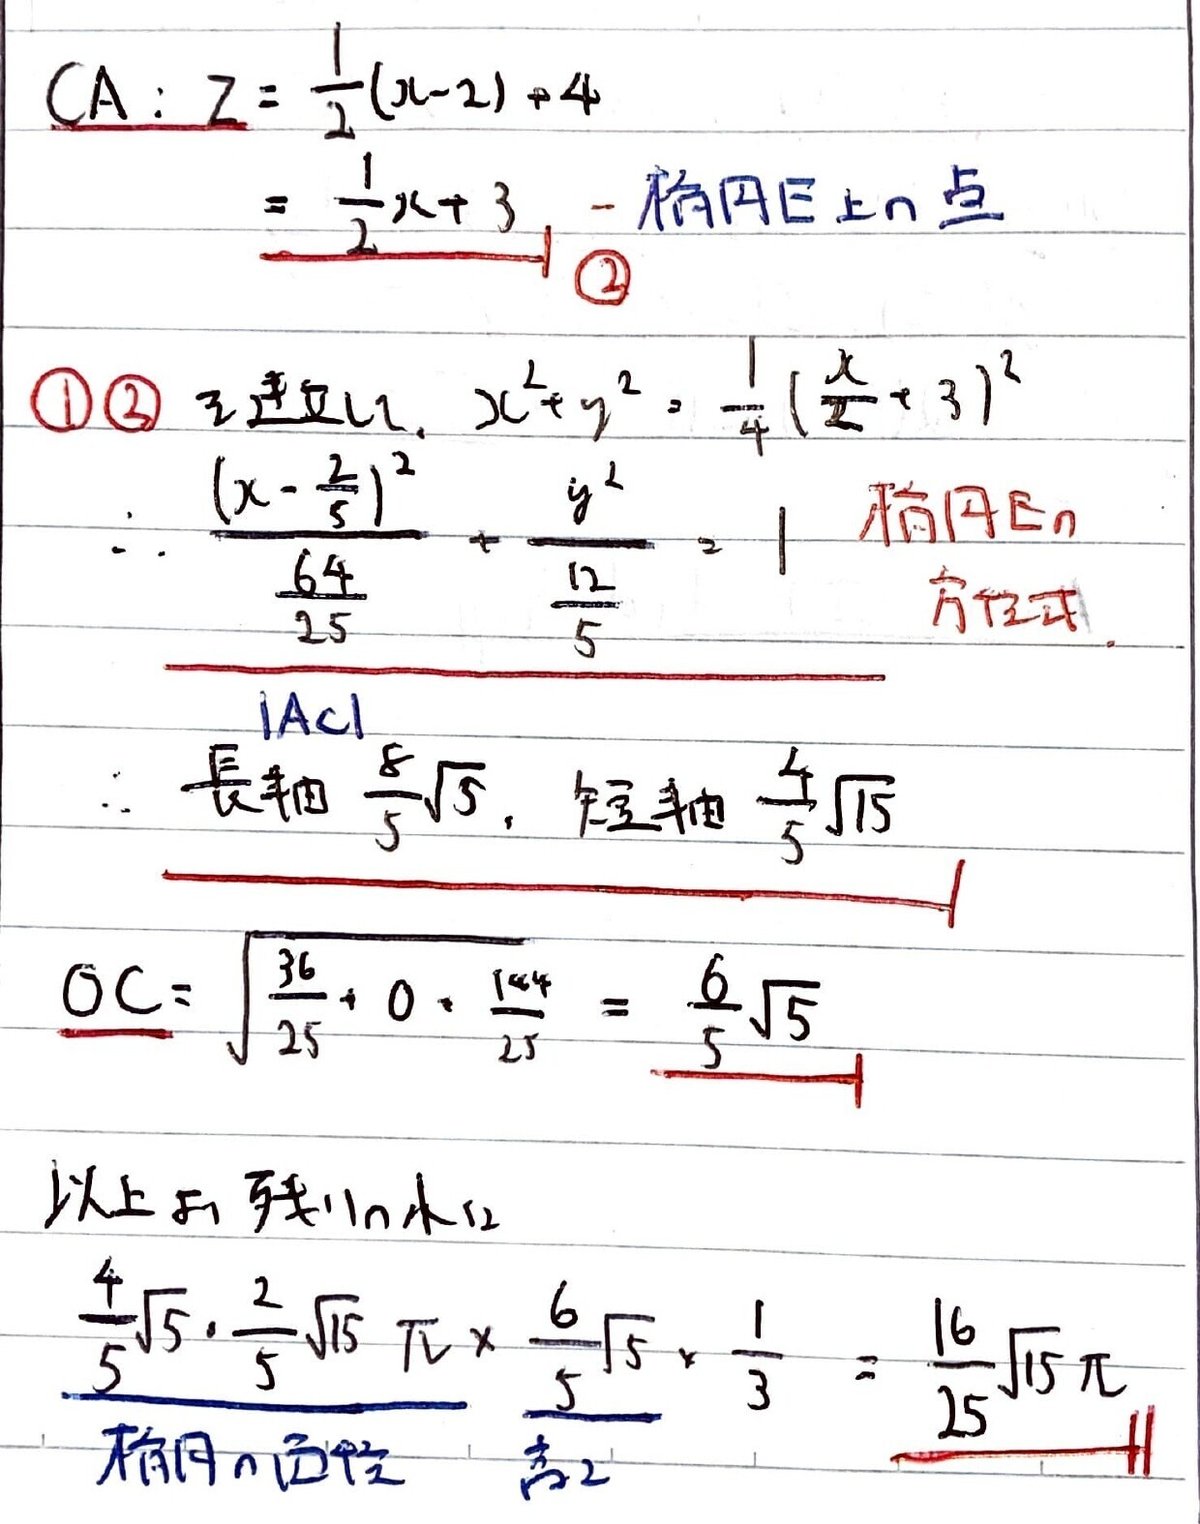 CA : Z = 1/2 (x-2) + 4
= 1/2 x + 3 - 楕円E上の点
②
①② を連立して、x² + y² = 1/4 (x/2 + 3)²
∴ (x - 2/5)² / (64/25) + y² / (12/5) = 1 楕円Eの
方程式.
|AC|
∴ 長軸 8/5 √5, 短軸 4/5 √15
OC = √(36/25 + 0 + 144/25) = 6/5 √5
以上より 残りの水は
4/5 √5 · 2/5 √15 π × 6/5 √5 × 1/3 = 16/25 √15 π
楕円の面積 高さ